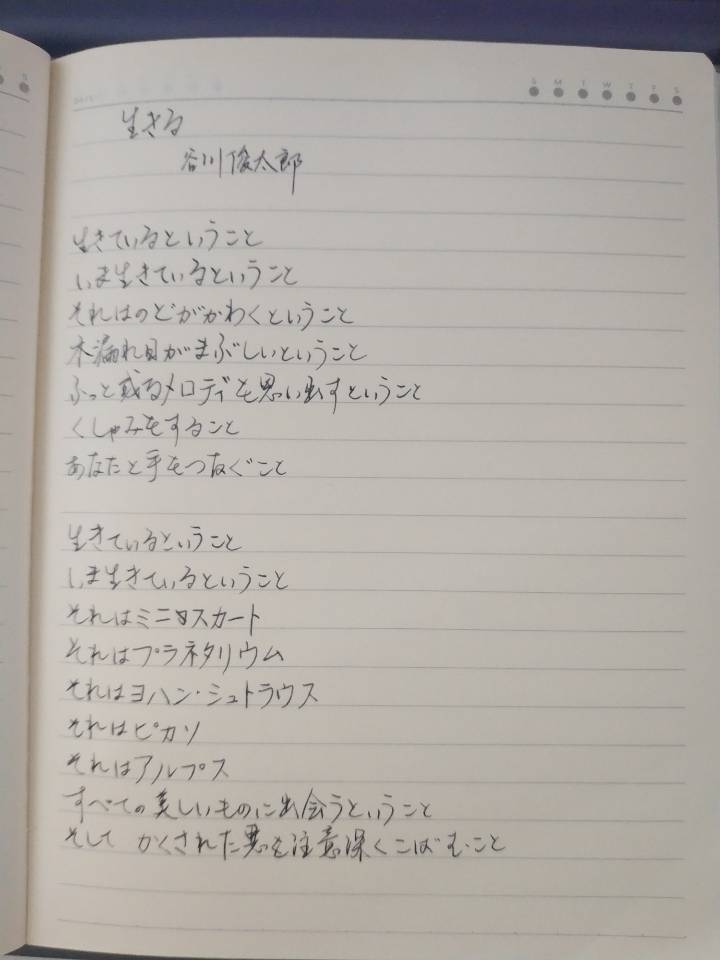 S M T W T F S
生きる
谷川俊太郎
生きているということ
いま生きているということ
それはのどがかわくということ
木漏れ日がまぶしいということ
ふっと或るメロディを思い出すということ
くしゃみをすること
あなたと手をつなぐこと
生きているということ
いま生きているということ
それはミニスカート
それはプラネタリウム
それはヨハン・シュトラウス
それはピカソ
それはアルプス
すべての美しいものに出会うということ
そして かくされた悪を注意深くこばむこと